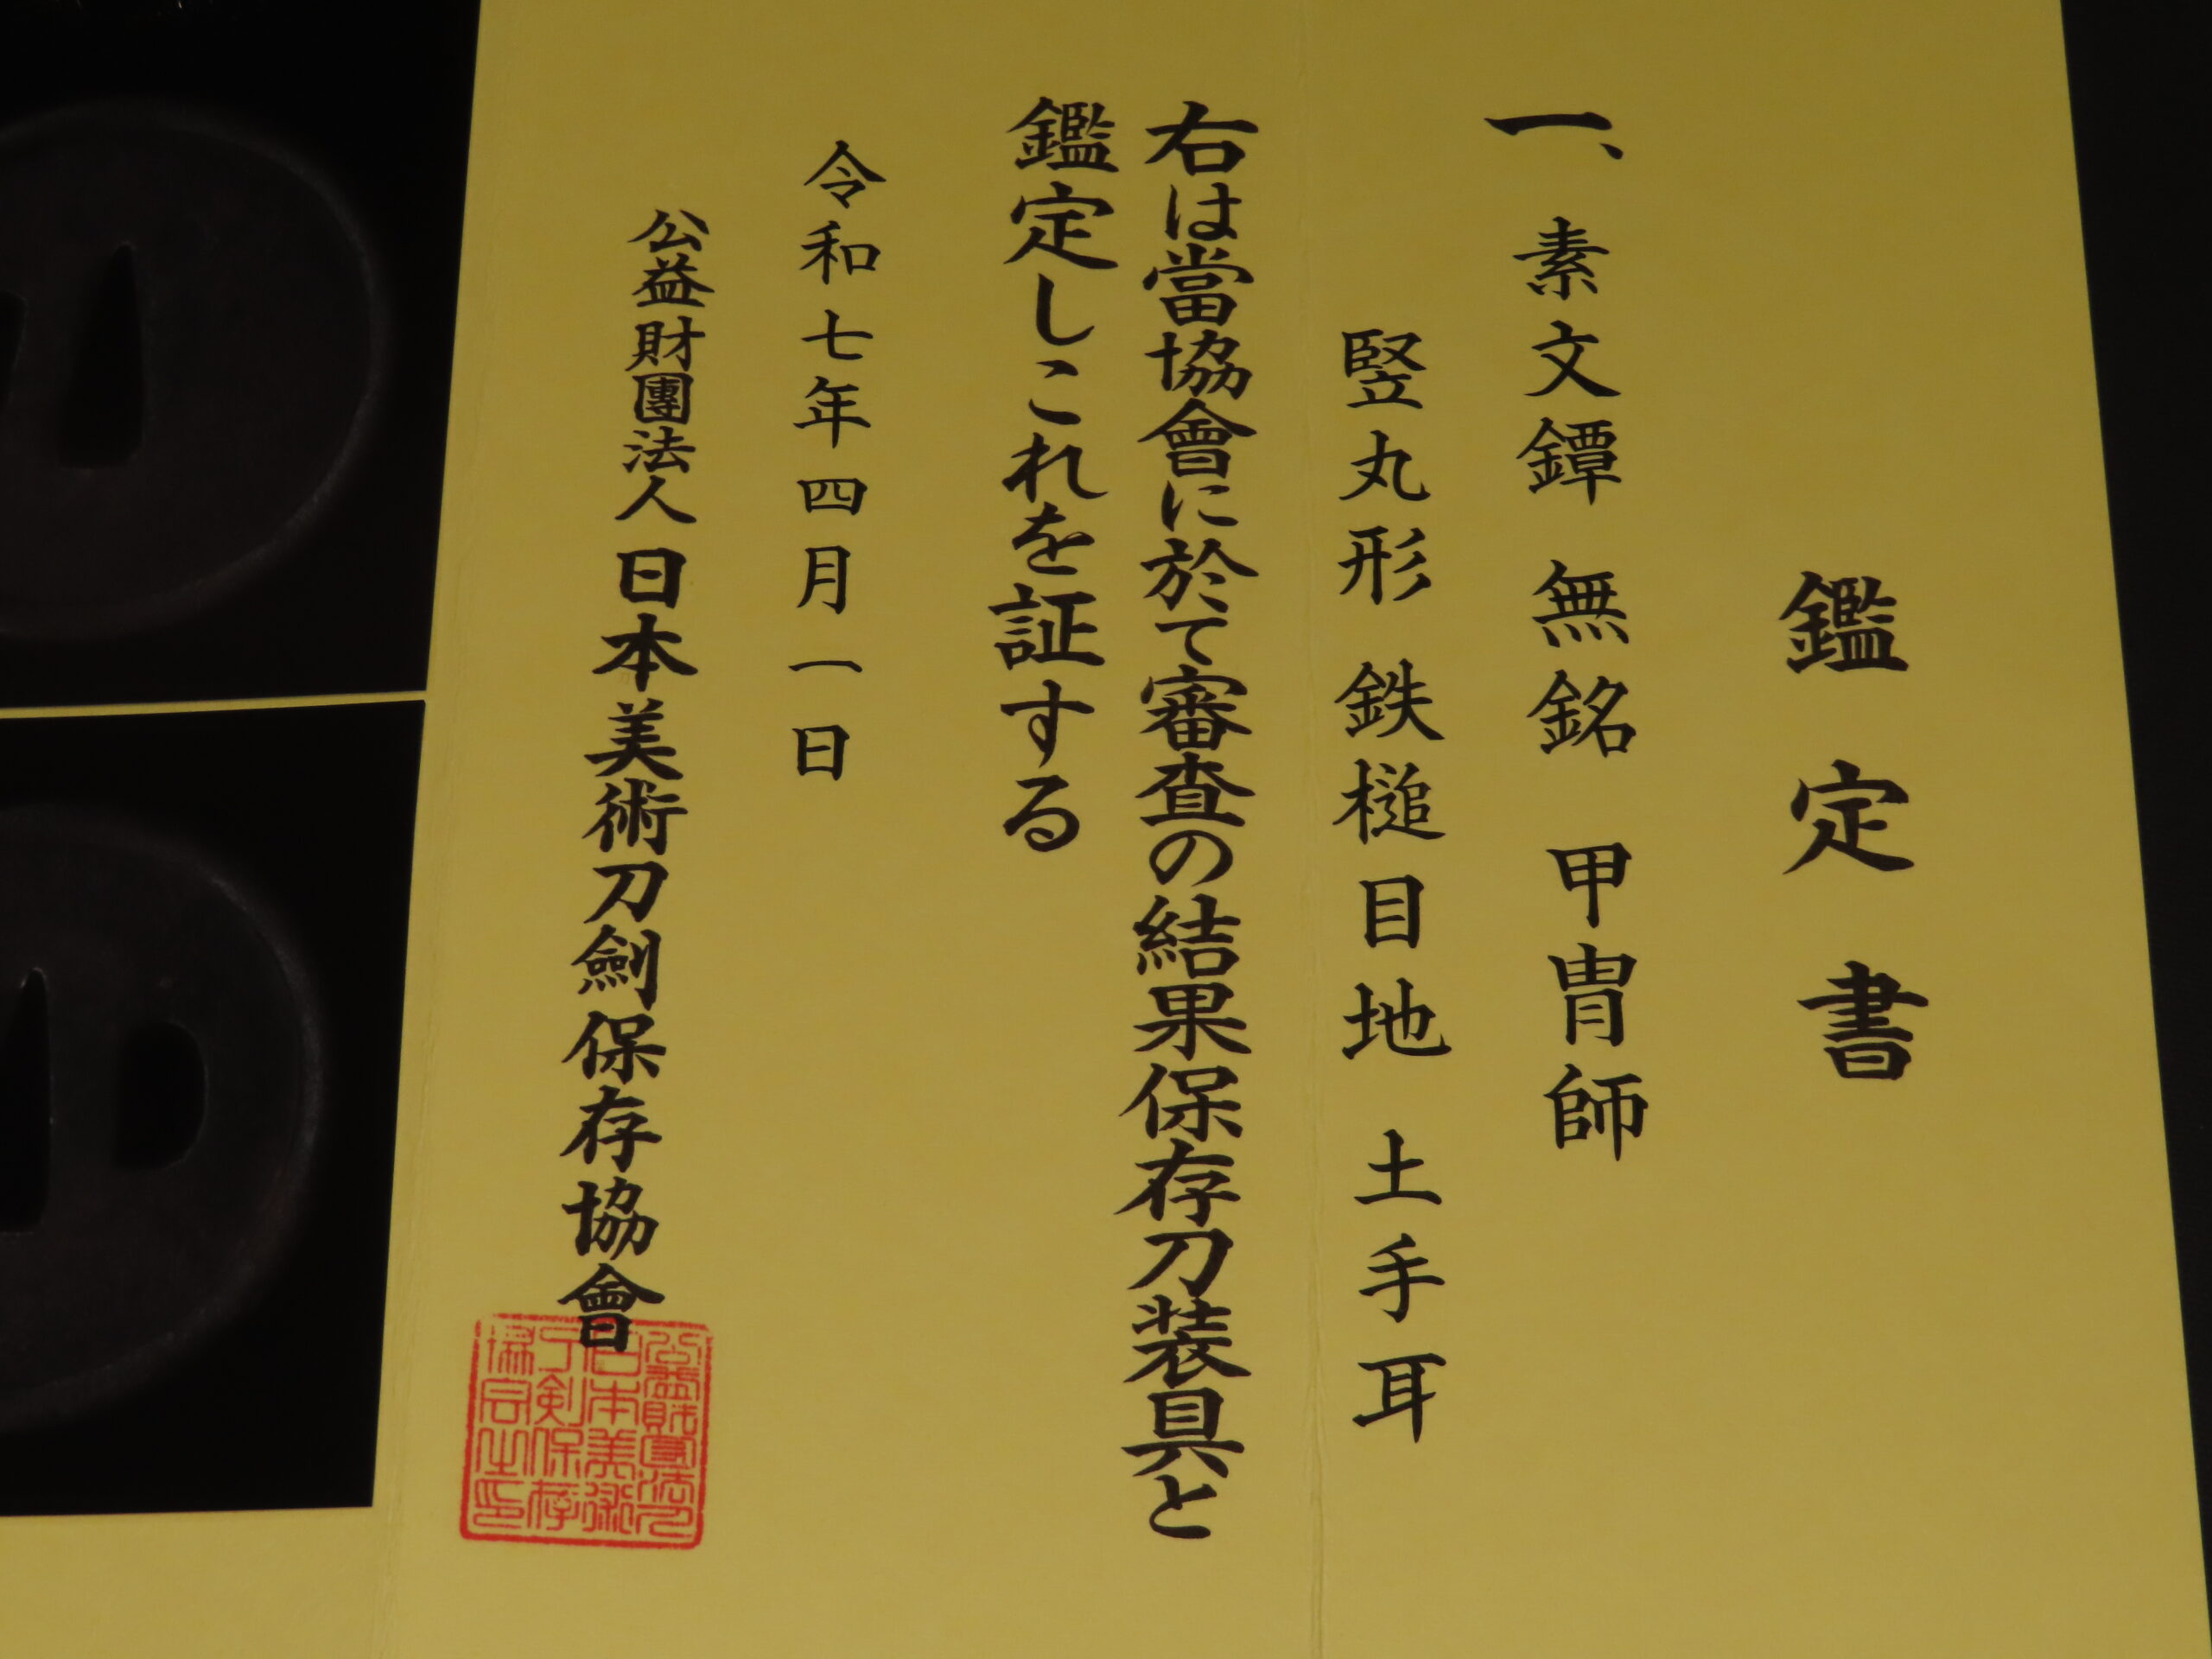 鑑定書
一、素文鐔 無銘 甲冑師
竪丸形 鉄槌目地 土手耳
右は當協會に於て審査の結果保存刀装具と
鑑定しこれを証する
令和七年四月一日
公益財團法人 日本美術刀劍保存協會
公益財団法人
日本美術
刀剣保存
協会之印